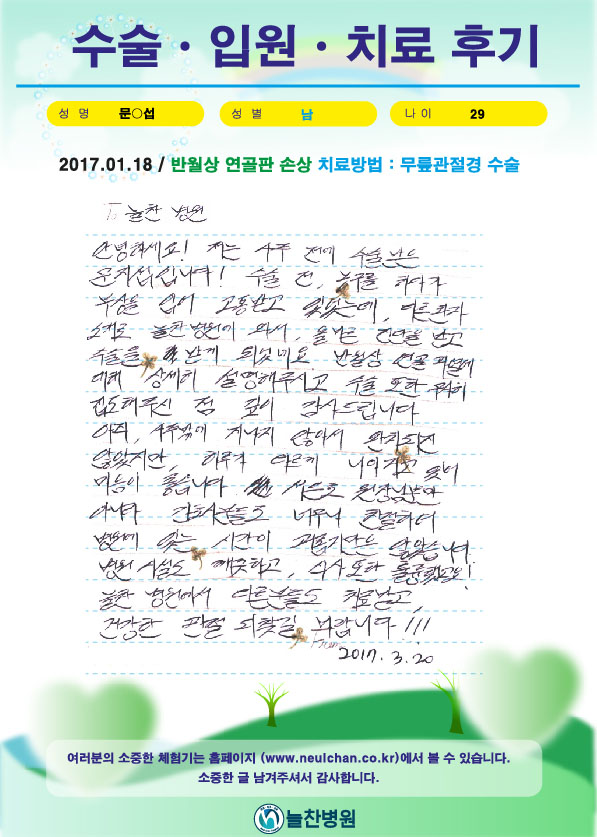 수술 · 입원 · 치료 후기
성 명 문○섭 성 별 남 나 이 29
2017.01.18 / 반월상 연골판 손상 치료방법 : 무릎관절경 수술
To 늘찬 병원
안녕하세요! 저는 4주 전에 수술받은
문지섭입니다! 수술 전, 농구를 하다가
부상을 입어 고통받고 있었는데, 다른환자
소개로 늘찬병원에 와서, 올바른 진단을 받고
수술을 받게 되었네요 반월상 연골
대해 상세히 설명해주시고 수술 또한
집도해주신 점 깊이 감사드립니다
아직, 4주밖에 지나지 않아서 완치되진
않았지만, 하루가 다르게 나아지고 있어
믿음이 좋습니다 원장님뿐만
아니라 간호사분들도 너무나 친절하여
병원에 있는 시간이 괴롭지만은 않았습니다
병원 시설도 깨끗하고, 식사 또한 훌륭했고요!
늘찬 병원에서 다른분들도 치료받고,
건강한 관절 되찾길 바랍니다!!!
From
2017. 3. 20
여러분의 소중한 체험기는 홈페이지 (www.neulchan.co.kr)에서 볼 수 있습니다.
소중한 글 남겨주셔서 감사합니다.
늘찬병원